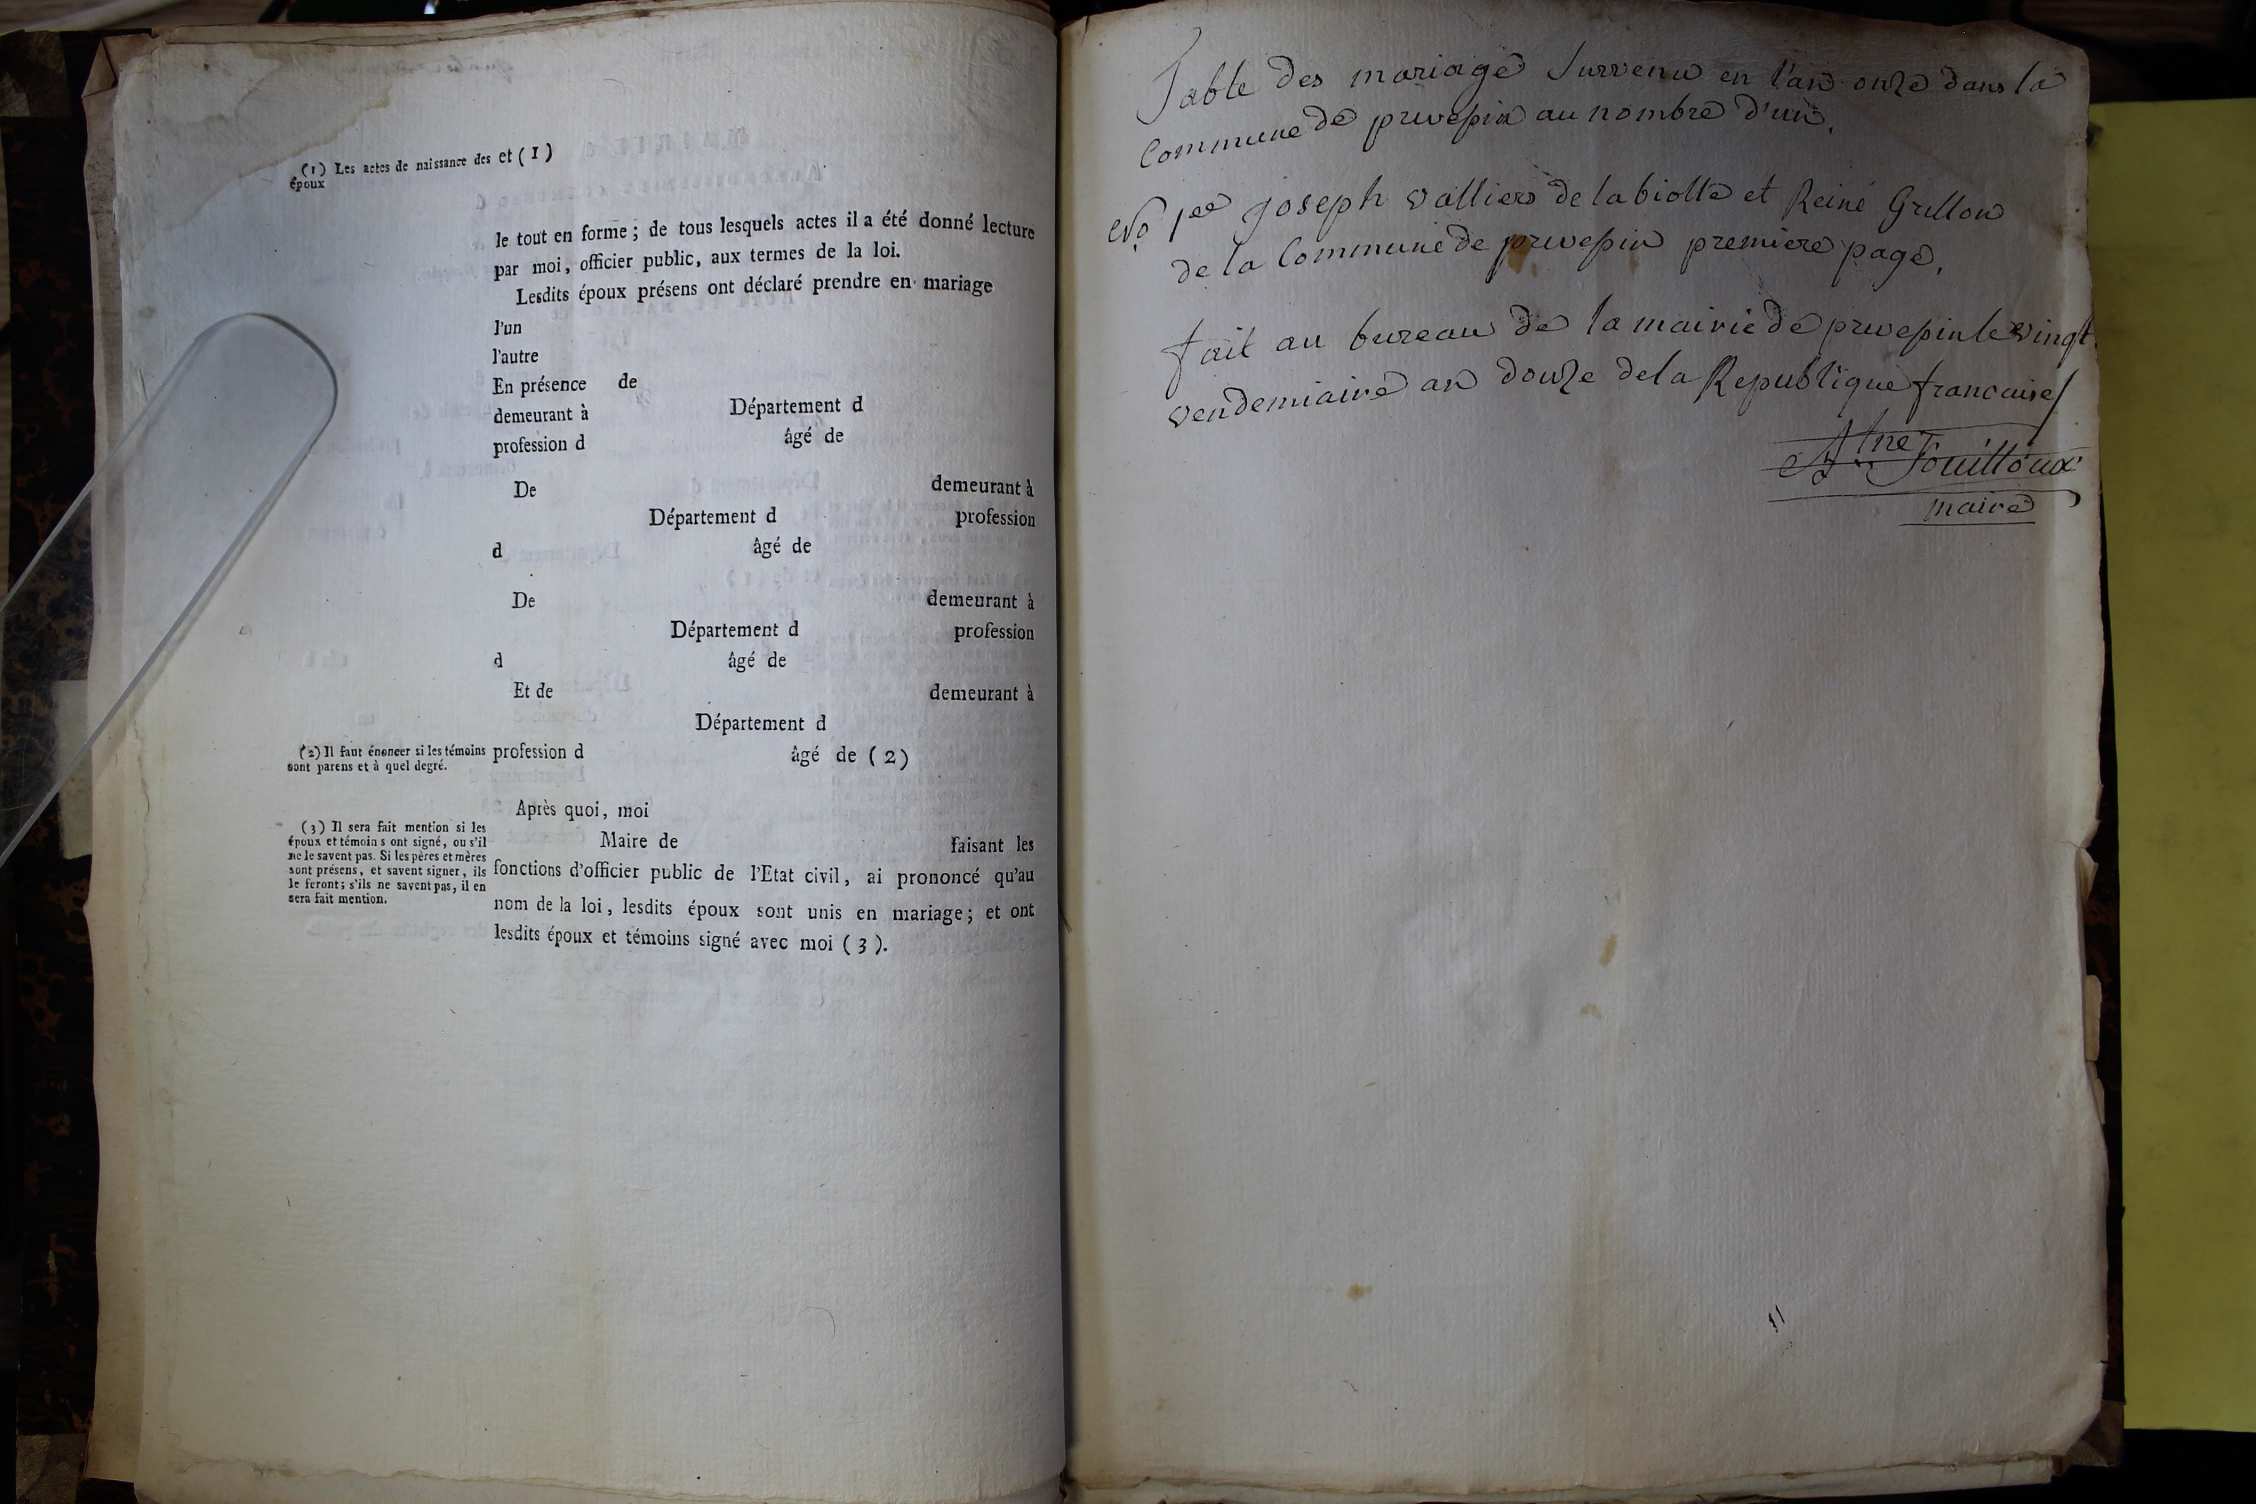 (1) Les actes de naissance des
époux
et (1)
le tout en forme ; de tous lesquels actes il a été donné lecture
par moi, officier public, aux termes de la loi.
Lesdits époux présens ont déclaré prendre en mariage
l'un
l'autre
En présence de
demeurant à Département d
profession d âgé de
De demeurant à
Département d profession
d âgé de
De demeurant à
Département d profession
d âgé de
Et de demeurant à
Département d
profession d âgé de (2)
(2) Il faut énoncer si les témoins
sont parens et à quel degré.
Après quoi, moi
Maire de faisant les
fonctions d'officier public de l'Etat civil, ai prononcé qu'au
nom de la loi, lesdits époux sont unis en mariage; et ont
lesdits époux et témoins signé avec moi (3).
(3) Il sera fait mention si les
époux et témoins ont signé, ou s'il
ne le savent pas. Si les pères et mères
sont présens, et savent signer, ils
le feront; s'ils ne savent pas, il en
sera fait mention.
Table des mariage survenu en l'an onze dans la
Commune de pruvepin au nombre d'un.
No 1er joseph valliere de la biolle et Reine Grillon
de la Commune de pruvepin premiere page.
fait au bureau de la mairie de pruvepin le vingt
vendemiaire an douze de la Republique francaise/
Fouilloux
maire